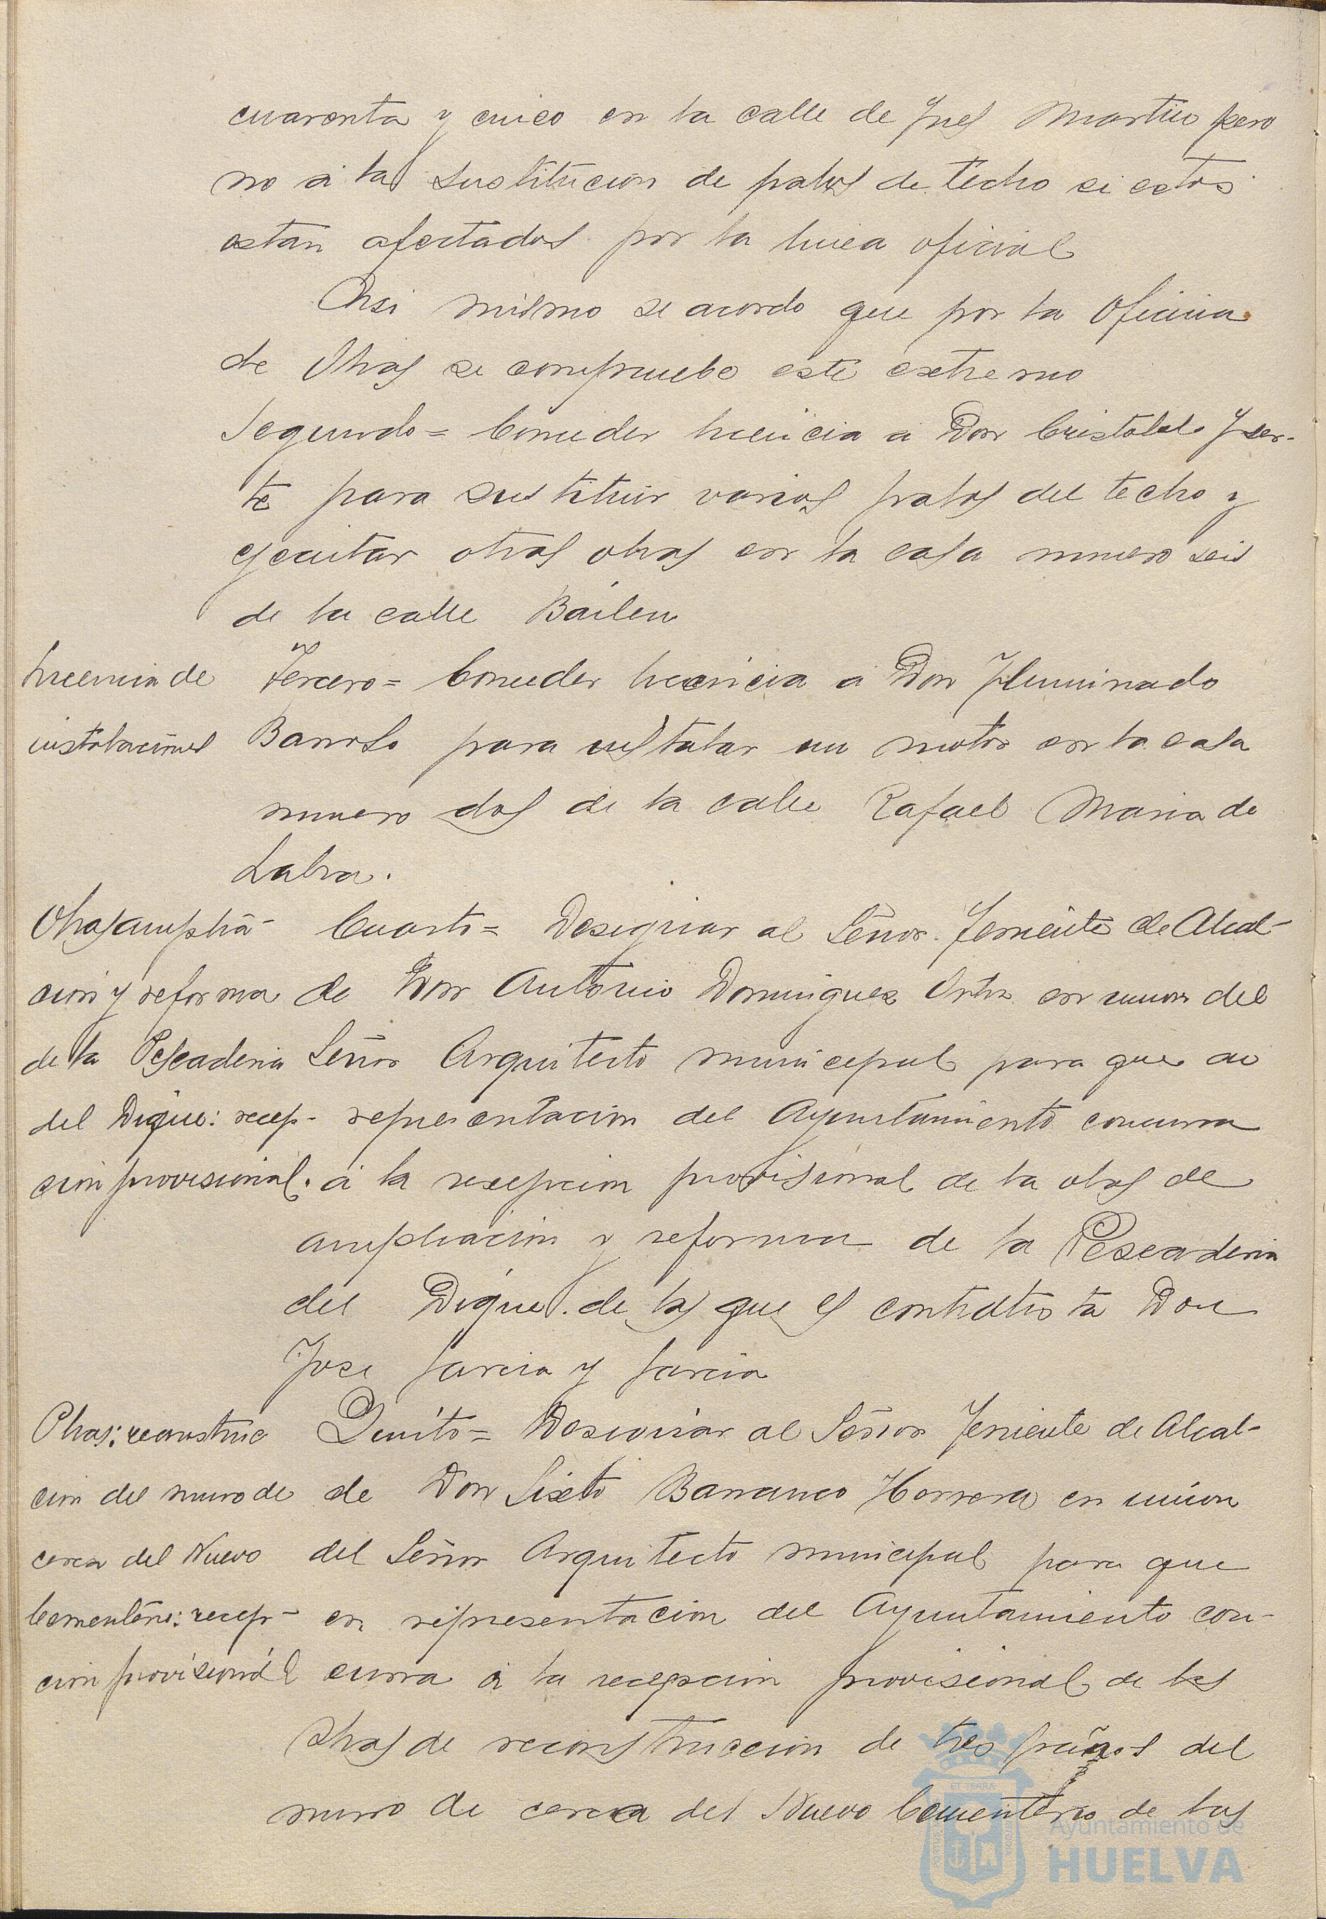 cuarenta y cinco en la calle de Ynes Martin pero
no a la sustitucion de palos de techo si estos
estan afectados por la linea oficial
Asi mismo se acordo que por la Oficina
de Obras se compruebe este extremo
Segundo= Conceder licencia a Don Cristobal
te para sustituir varios palos del techo y
ejecutar otras obras en la casa numero seis
de la calle Bailen
Licencia de
instalaciones
Tercero= Conceder licencia a Don Yluminado
Barroso para instalar un motor en la casa
numero dos de la calle Rafael Maria de
Labra.
Obras amplia-
cion y reforma
de la Pescaderia
del Dique: recep-
cion provisional.
Cuarto= Designar al Señor Teniente de Alcal-
de Don Antonio Dominguez Ortiz en union del
Señor Arquitecto municipal para que en
representacion del Ayuntamiento concurra
a la recepcion provisional de la obras de
ampliacion y reforma de la Pescaderia
del Dique de las que es contratista Don
Jose Garcia y Garcia
Obras: reconstruc
cion del muro de
cerca del Nuevo
Cementerio: recep-
cion provisional
Quinto= Designar al Señor Teniente de Alcal-
de Don Sixto Barranco Herrera en union
del Señor Arquitecto municipal para que
en representacion del Ayuntamiento con-
curra a la recepcion provisional de las
obras de reconstruccion de tres paños del
muro de cerca del Nuevo Cementerio de las
Ayuntamiento de
HUELVA